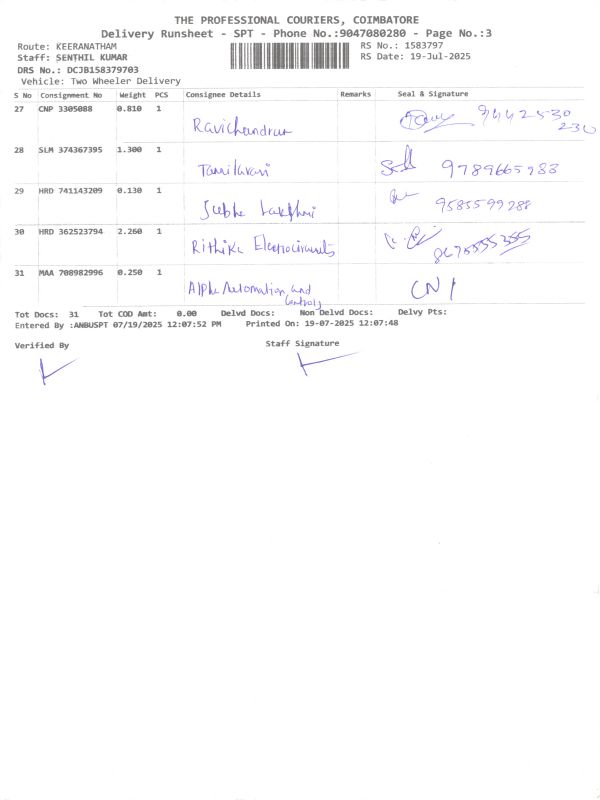 THE PROFESSIONAL COURIERS, COIMBATORE
Delivery Runsheet - SPT - Phone No.:9047080280 - Page No.:3
Route: KEERANATHAM
RS No.: 1583797
Staff: SENTHIL KUMAR
RS Date: 19-Jul-2025
DRS No.: DCJB158379703
Vehicle: Two Wheeler Delivery
S No Consignment No Weight PCS Consignee Details Remarks Seal & Signature
27 CNP 3305088 0.810 1 Ravichandran 9442530
230
28 SLM 374367395 1.300 1 Tamilarasi 9789665983
29 HRD 741143209 0.130 1 9585599288
30 HRD 362523794 2.260 1 Rithika Electrocircuits
31 MAA 708982996 0.250 1 Alpha Automation and
Controls
Tot Docs: 31 Tot COD Amt: 0.00 Delvd Docs: Non Delvd Docs: Delvy Pts:
Entered By :ANBUSPT 07/19/2025 12:07:52 PM Printed On: 19-07-2025 12:07:48
Verified By
Staff Signature